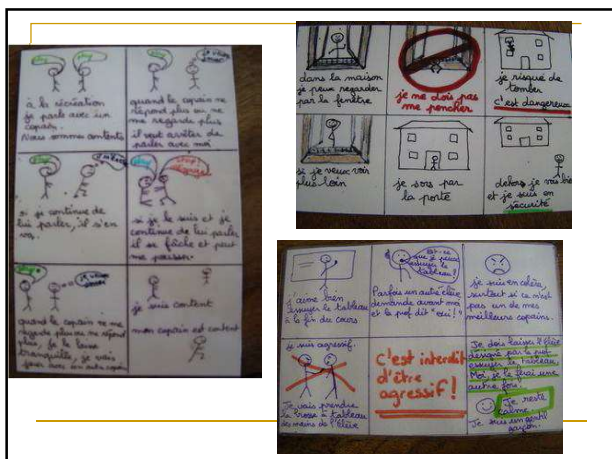 à la récréation
je parle avec un
copain.
Nous sommes contents
quand le copain ne
répond plus ou ne
me regarde plus
il veut arrêter de
parler avec moi
si je continue de
lui parler, il s'en
va.
si je le suis et je
continue de lui parler
il se fâche et peut
me pousser.
quand le copain ne me
regarde plus ou ne répond
plus, je le laisse
tranquille, je vais
jouer avec un autre copain
je suis content
mon copain est content
dans la maison
je peux regarder
par la fenêtre
je ne dois pas
me pencher
je risque de
tomber
c'est dangereux
si je veux voir
plus loin
je sors par
la porte
dehors je vois bien
et je suis en
sécurité
J'aime bien
essuyer le tableau
à la fin du cours
Est-ce
que je peux
essuyer le
tableau?
Parfois un autre élève
demande avant moi
et le prof dit "oui!"
je suis en colère,
surtout si ce n'est
pas un de mes
meilleurs copains.
je suis agressif.
Je vais prendre
la brosse à tableau
des mains de l'élève
C'est interdit
d'être
agressif!
Je dois laisser l'élève
désigné par le prof
essuyer le tableau.
Moi, je le ferai une
autre fois.
Je reste
calme
Je suis un gentil
garçon.